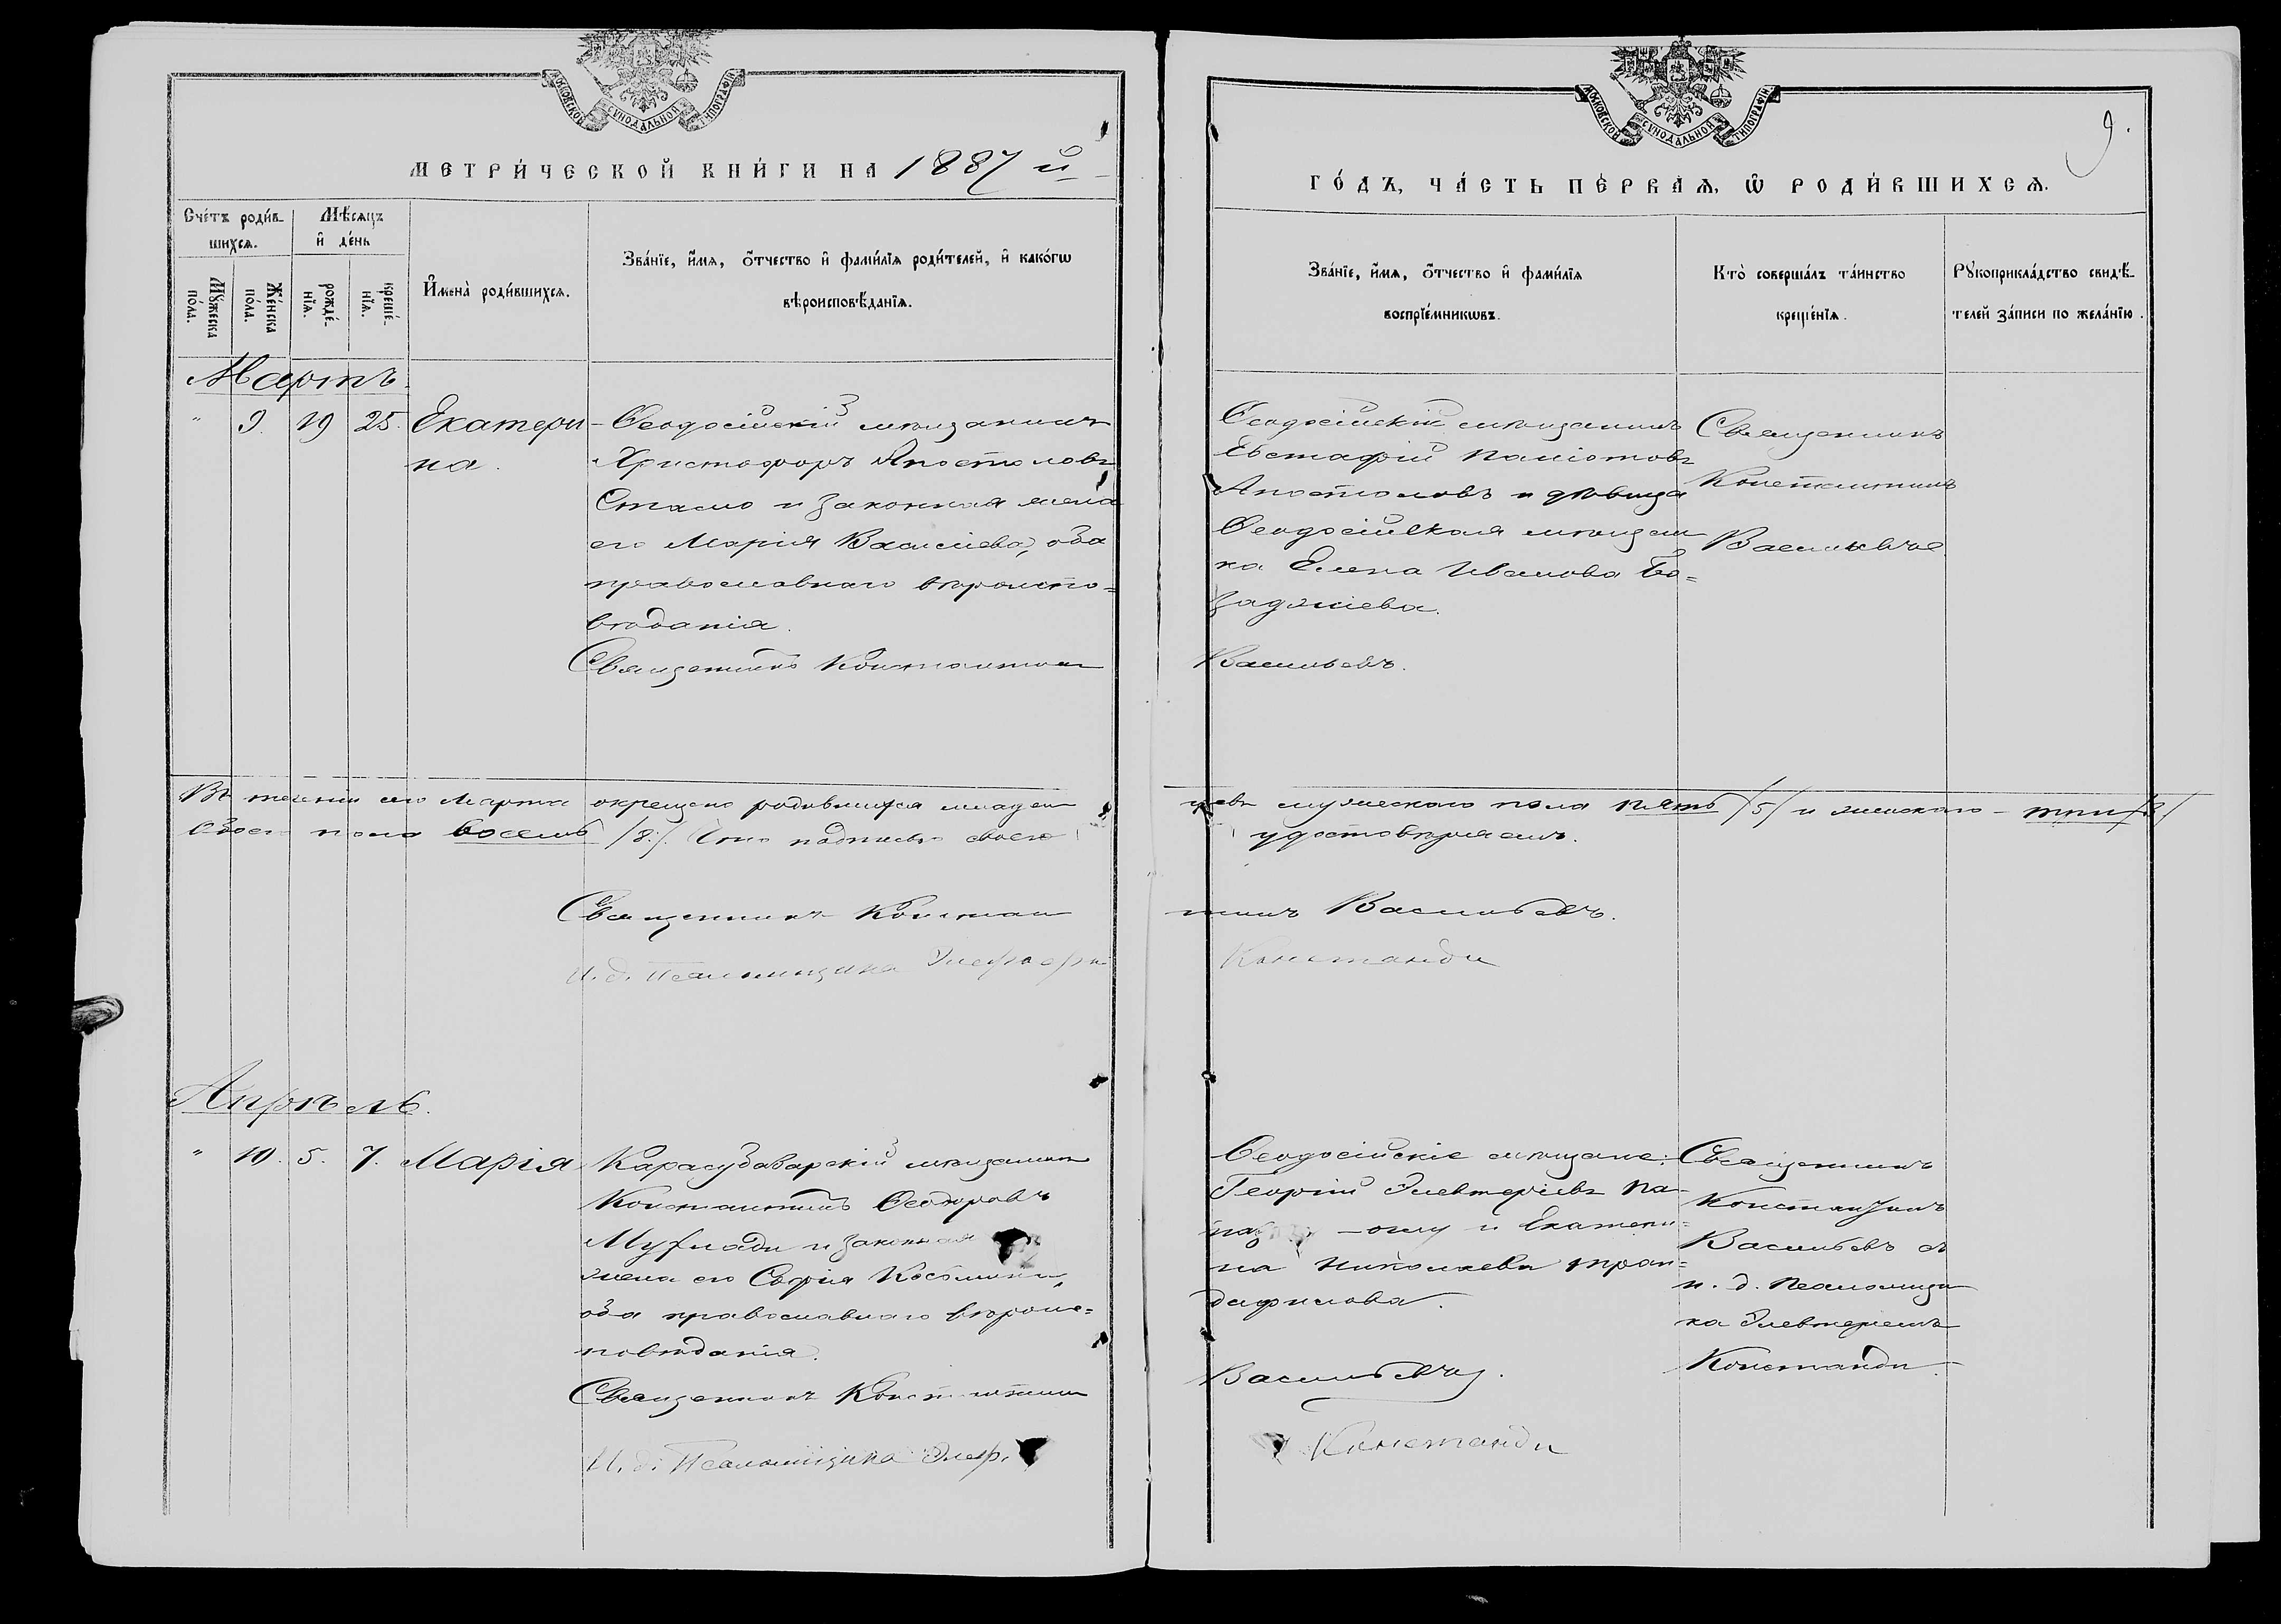 МОСКОВСКОЙ СѴНОДАЛЬНОЙ ТИПОГРАФІИ
МЕТРИ́ЧЕСКОЙ КНИ́ГИ НА 1887 й
Сче́тъ роди́в-
шихсѧ.
Мѣ́сѧцъ
и҆ де́нь
Мꙋ́жеска по́ла.
Же́нска по́ла.
рожде́-
нїѧ.
креще́-
нїѧ.
И҆мена̀ роди́вшихсѧ.
Зва́нїе, и҆́мѧ, о҆́тчество и҆ фами́лїѧ роди́телей, и҆ како́гѡ
вѣроисповѣ́данїѧ.
Мартъ.
" 9. 19 25. Екатери
на.
Ѳеодосійскій мѣщанинъ
Христофоръ Апостоловъ
Стамо и законная жена
его Марія Василіева, оба
православнаго вѣроиспо=
вѣданія.
Священникъ Константин
Въ теченіи сего Марта окрещено родившихся младен
обоего пола восемь /8./. Что подписью своею
Священникъ Констан
И. д. Псаломщика
Апрѣль.
" 10. 5. 7. Марія
Карасубазарскій мѣщанинъ
Константинъ Ѳеодоровъ
и законная
жена его Софія
оба православнаго вѣроис=
повѣданія.
Священникъ Константинъ
И. д. Псаломщика Элеф.
МОСКОВСКОЙ СѴНОДАЛЬНОЙ ТИПОГРАФІИ
9.
ГО́ДЪ, ЧА́СТЬ ПЕ́РВАѦ, Ѽ РОДИ́ВШИХСѦ.
Зва́нїе, и҆́мѧ, о҆́тчество и҆ фами́лїѧ
воспрїе́мникѡвъ.
Кто̀ соверша́лъ та́инство
креще́нїѧ.
Рꙋкоприкла́дство свидѣ́-
телей за́писи по жела́нїю.
Ѳеодосійскій мѣщанинъ
Евстафій
Апостоловъ и дѣвица
Ѳеодосійская мѣщан
ка Елена Иванова Бо=
заджіева.
Васильевъ.
Священникъ
Константинъ
Васильевъ
цевъ мужескаго пола пять /5/ и женскаго - три /3/
удостовѣряемъ.
тинъ Васильевъ.
Констанди
Ѳеодосійскіе мѣщане:
Георгій Элевтеріевъ Па-
-оглу и Екатери=
на Николаева Тран=
дафилова.
Васильевъ.
Констанди
Священникъ
Константинъ
Васильевъ съ
и. д. Псаломщи
ка Элевтеріемъ
Констанди.